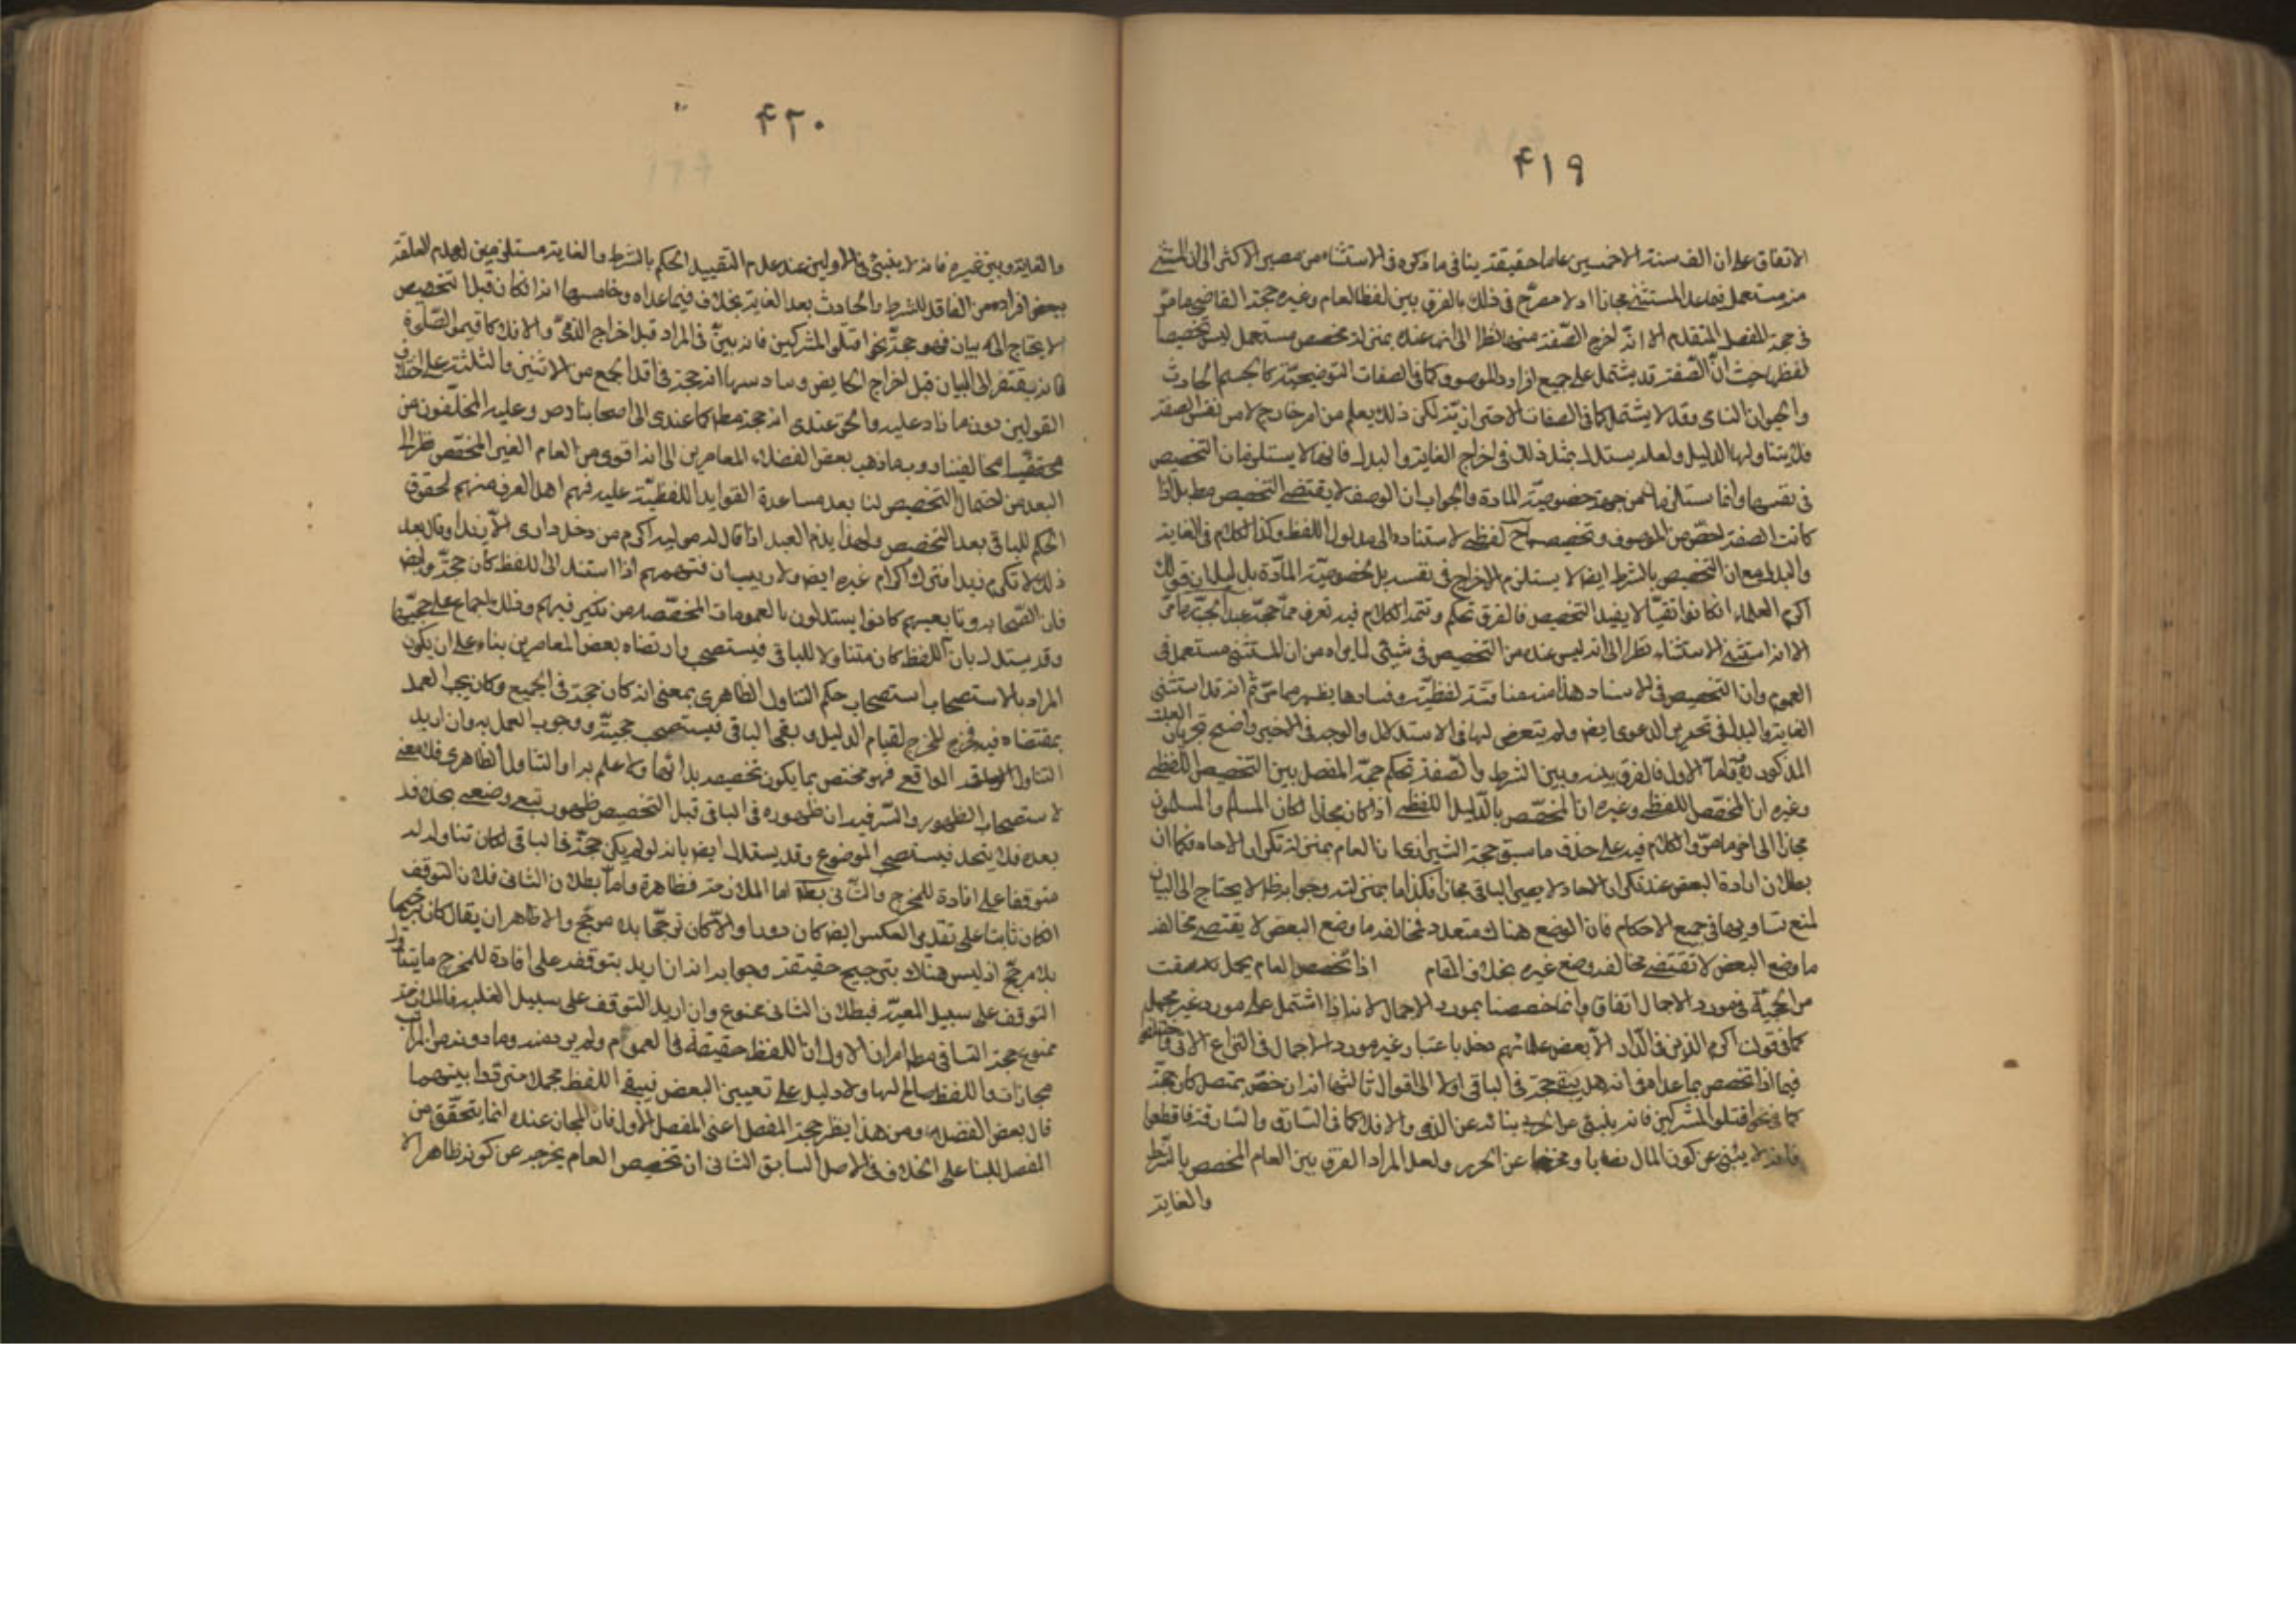 ٤١٩
الاتفاق على ان الف سنة الا خمسين عاما حقيقة ينافى ما ذكره فى الاستثناء من مصير الاكثر الى ان المستثنى
منه مستعمل فيما عدا المستثنى مجازا اذ لا مصرح فى ذلك بالفرق بين لفظ العام وغيره حجة القاضى ما مر
فى حجة المفصل المتقدم الا انه اخرج الصفة منها نظرا الى انها عنده بمنزلة مخصص مستعمل ليس تخصيصا
لفظيا حيث ان الصفة قد يشتمل على جميع افراد الموصوف كما فى الصفات التوضيحية كالجسم الحادث
والحيوان النامى وقد لا يشتمل كما فى الصفات الاحترازية لكن ذلك يعلم من امر خارج لا من نفس الصفة
فلا يتناولها الدليل ولعله يستدل بمثل ذلك فى اخراج الغاية والبدل فانهما لا يستلزمان التخصيص
فى نفسهما وانما يستلزمانه من جهة خصوصية المادة والجواب ان الوصف لا يقتضى التخصيص مط بل اذا
كانت الصفة اخص من الموصوف وتخصيصه ح لفظى لاستناده الى مدلول اللفظ وكذا الكلام فى الغاية
والبدل مع ان التخصيص بالشرط ايضا لا يستلزم الاخراج فى نفسه بل لخصوصية المادة بدليل ان قولك
اكرم العلماء ان كانوا تقيا لا يفيد التخصيص فالفرق تحكم وتتمة الكلام فيه تعرف مما مر حجة عبد الجبار ما مر
الا انه استثنى الاستثناء نظرا الى انه ليس عنده من التخصيص فى شيئ لما يراه من ان المستثنى مستعمل فى
العموم وان التخصيص فى الاسناد هذا منه مناقشة لفظية وفسادها يظهر مما مر ثم انه قد استثنى
الغاية والبدل فى تحرير الدعوى ايضا ولم يتعرض لهما فى الاستدلال والوجه فى الاخير واضح لجريان العلة
المذكورة فيه واما الاول فالفرق بينه وبين الشرط والصفة تحكم حجة المفصل بين التخصيص اللفظى
وغيره ان المخصص اللفظى وغيره ان المخصص بالدليل اللفظى اذا كان مجازا لكان المسلم والمسلمون
مجازا الى اخر ما مر والكلام فيه على حذف ما سبق حجة الشيرازى ان العام بمنزلة تكرار الاحاد فكما ان
بطلان ارادة البعض عند تكرار الاحاد لا يصير الباقى مجازا فكذا ما بمنزلته وجوابه ظ لا يحتاج الى البيان
لمنع تساويهما فى جميع الاحكام فان الوضع هناك متعدد فمخالفة ما وضع البعض لا يقتضى مخالفة
ما وضع البعض لا تقتضى مخالفة وضع غيره بخلاف المقام اذا تخصص العام بمجمل سقط
من الحجية فى مورد الاجمال اتفاقا وانما خصصنا بمورد الاجمال لانه اذا اشتمل على مورد غير مجمل
كما فى قولك اكرم الذين فى الدار الا بعض علمائهم دخل باعتبار غير مورد الاجمال فى النزاع الاتى واختلفوا
فيما اذا تخصص بما عداه فى انه هل يبقى حجة فى الباقى او لا الى اقوال ثالثها انه ان خص بمتصل كان حجة
كما فى نحو اقتلوا المشركين فانه ينبئ عن الحربى بنائه عن الذمى والا فلا كما فى السارق والسارقة فاقطعوا
فانه لا ينبئ عن كون المال نصابا ومخرجا عن الحرز ولعل المراد الفرق بين العام المخصص بالشرط
والغاية
٤٢٠
والغاية وبين غيره فانه لا ينبئ فى الاولين عند عدم التقييد الحكم بالشرط والغاية مستلزمين لعدم العلقة
ببعض افراده من الفاقد للشرط والحادث بعد الغاية بخلاف فيما عداه وخامسها انه ان كان قبل التخصيص
لا يحتاج الى بيان فهو حجة نحو اقتلوا المشركين فانه بين فى المراد قبل اخراج الذمى والا فلا كاقيموا الصلوة
فانه يفتقر الى البيان قبل اخراج الحايض وسادسها انه حجة فى اقل الجمع من الاثنين والثلثة على اختلاف
القولين دون ما زاد عليه والحق عندى انه حجة مطلقا كما عزى الى اصحابنا دص وعليه المخلفون من
محققى مخالفينا وربما ذهب بعض الفضلاء المعاصرين الى انه اقوى من العام الغير المخصص نظرا الى
البعد من احتمال التخصيص لنا بعد مساعدة القوايد اللفظية عليه فهم اهل العرف منهم لحقوق
الحكم للباقى بعد التخصيص ولهذا يذم العبد اذا قال له مولاه اكرم من دخل دارى الا زيدا وقال بعد
ذلك لا تكرم زيدا فترك اكرام غيره ايضا ولا ريب ان فهمهم اذا استند الى اللفظ كان حجة وايض
فان الصحابة وتابعيهم كانوا يستدلون بالعمومات المخصصة من نكير فيهم وذلك اجماع على حجيتها
وقد يستدل بان اللفظ كان متناولا للباقى فيستصحب وارتضاه بعض المعاصرين بناء على ان يكون
المراد بالاستصحاب استصحاب حكم التناول الظاهرى بمعنى انه كان حجة فى الجميع وكان يجب العمل
بمقتضاه فيه فخرج المخرج لقيام الدليل وبقى الباقى فيستصحب حجيته ووجوب العمل به وان اريد
التناول الواقعى فهو مختص بما يكون تخصيصه بدائها ولا علم به او التناول الظاهرى فلا معنى
لاستصحاب الظهور والسر فيه ان ظهوره فى الباقى قبل التخصيص ظهور تبعى وضعى بخلافه
بعده فلا يتحد فيستصحب الموضوع وقد يستدل ايضا بانه لو لم يكن حجة فى الباقى لكان تناوله له
متوقفا على افادة للمخرج والثانى بط اما الملازمة فظاهرة واما بطلان الثانى فلان التوقف
ان كان ثابتا على تقدير العكس ايضا كان دورا والا كان ترجيحا بلا مرجح والاظهر ان يقال كان ترجيحا
بلا مرجح اذ ليس هناك بترجيح حقيقة وجوابه انه ان اريد بتوقفه على افادة للمخرج ما يتناوله
التوقف على سبيل المعية فبطلان الثانى ممنوع وان اريد التوقف على سبيل العلية فالملازمة
ممنوع حجة النافى مطلقا امران الاول ان اللفظ حقيقة فى العموم ولم يرد منه وما دونه من المراتب
مجازات واللفظ صالح لها ولا دليل على تعيين البعض فيبقى اللفظ مجملا مترددا بينهما
قال بعض الفضلاء ومن هذا يظهر حجة المفصل اعنى المفصل الاول فان المجاز عنده انما يتحقق من
المفصل للبنا على الخلاف فى الاصل السابق الثانى ان تخصيص العام يخرجه عن كونه ظاهرا لا